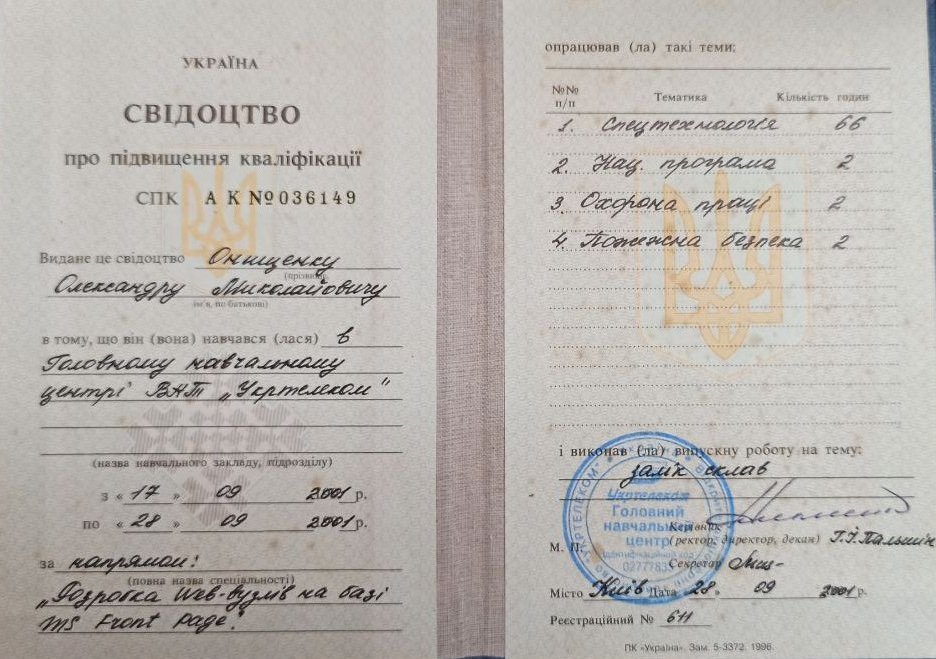 УКРАЇНА
СВІДОЦТВО
про підвищення кваліфікації
СПК АК№036149
Видане це свідоцтво Онищенку
(прізвище)
Олександру Миколайовичу
ім'я, по батькові)
в тому, що він (вона) навчався (лася) в
Головному навчальному
центрі ВАТ „Укртелеком"
(назва навчального закладу, підрозділу)
з « 17 » 09 2001 р.
по « 28 » 09 2001 р.
за напрямом:
(повна назва спеціальності)
„Розробка Web-вузлів на базі
MS Front Page".
опрацював (ла) такі теми:
№№ п/п Тематика Кількість годин
1. Спецтехнологія 66
2. Нац. програма 2
3 Охорона праці 2
4. Пожежна безпека 2
і виконав (ла) випускну роботу на тему:
залік склав
Укртелеком
Головний
навчальний
центр
ідентифікаційний код
Керівник
(ректор, директор, декан)
М. П.
Секретар
Місто Київ Дата « 28 » 09 2001 р.
Реєстраційний № 611
ПК «Україна». Зам. 5-3372. 1996.